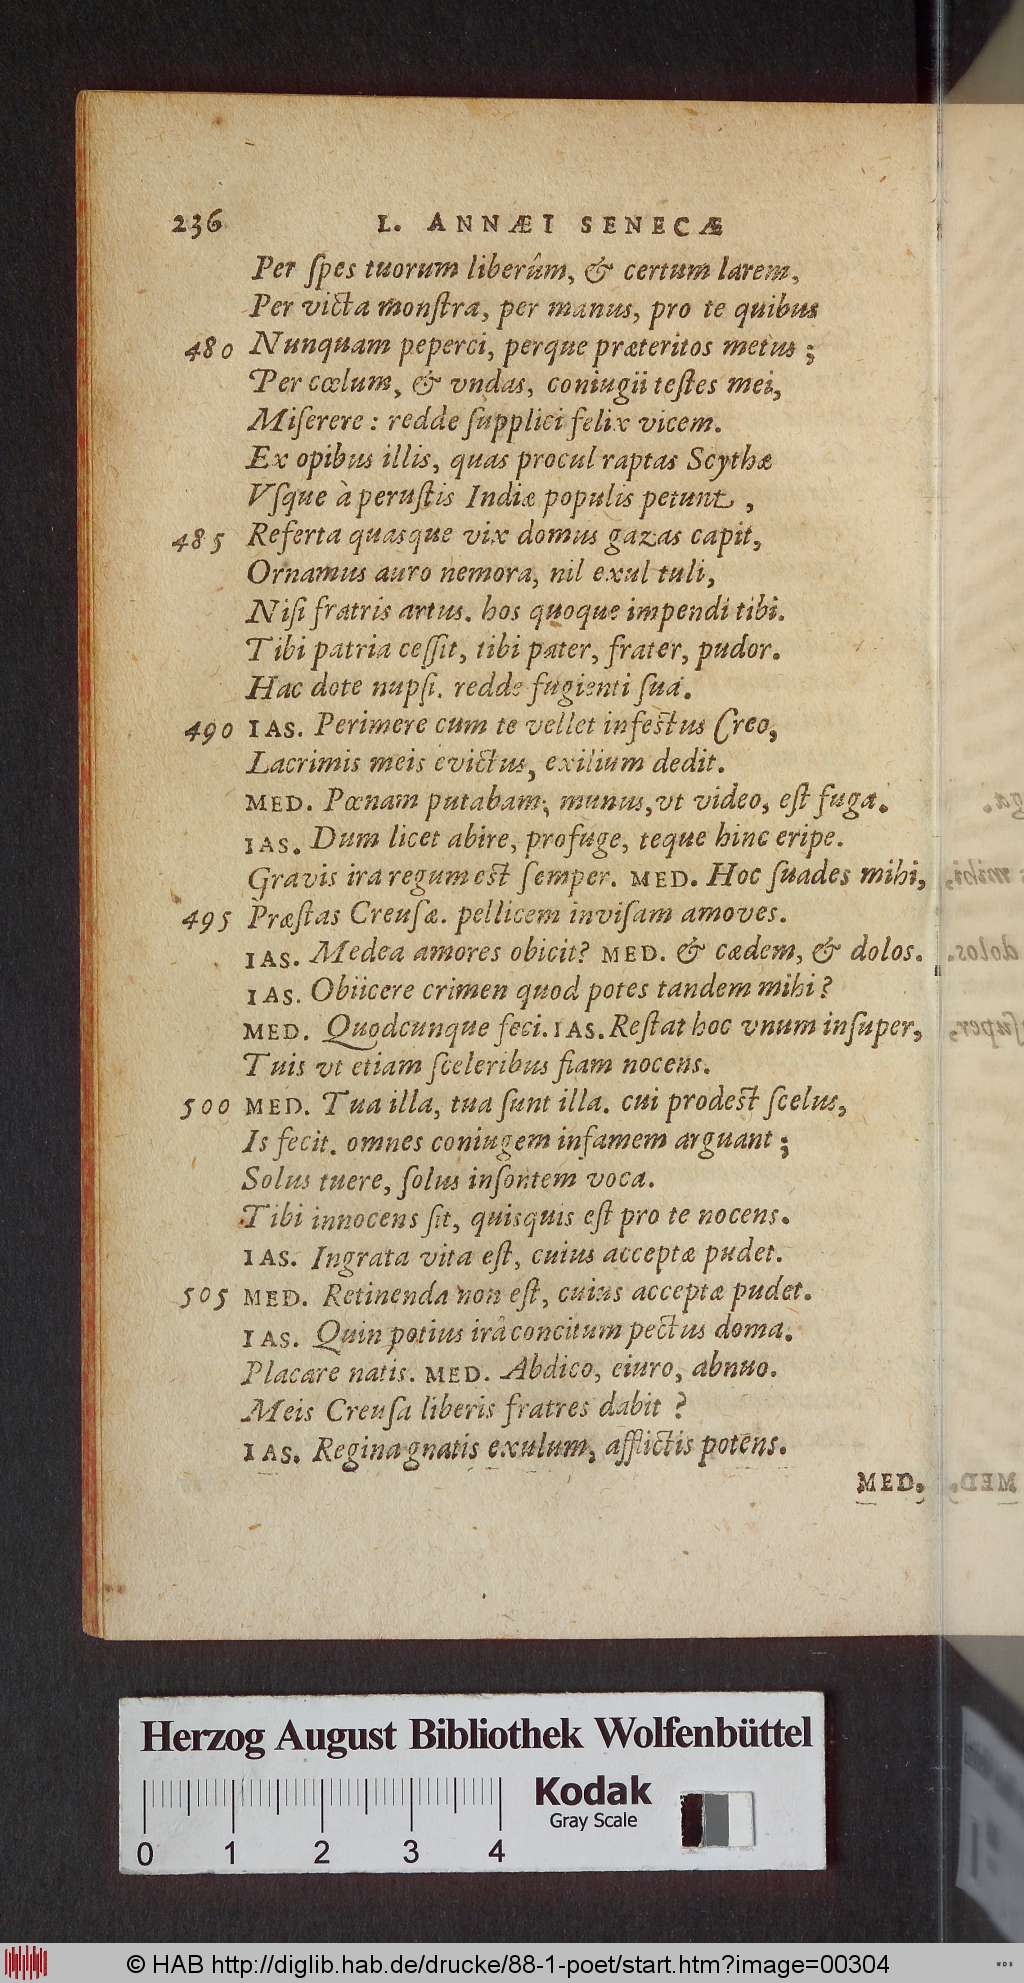 236 L. ANNÆI SENECÆ
Per ſpes tuorum liberûm, & certum larem,
Per victa monſtra, per manus, pro te quibus
480 Nunquam peperci, perque præteritos metus ;
Per cœlum, & vndas, coniugii teſtes mei,
Miſerere : redde ſupplici felix vicem.
Ex opibus illis, quas procul raptas Scythæ
Vſque à peruſtis Indiæ populis petunt ,
485 Referta quasque vix domus gazas capit,
Ornamus auro nemora, nil exul tuli,
Niſi fratris artus. hos quoque impendi tibi.
Tibi patria ceſſit, tibi pater, frater, pudor.
Hac dote nupſi. redde fugienti ſua.
490 IAS. Perimere cum te vellet infeſtus Creo,
Lacrimis meis evictus, exilium dedit.
MED. Pœnam putabam; munus, vt video, eſt fuga.
IAS. Dum licet abire, profuge, teque hinc eripe.
Gravis ira regum eſt ſemper. MED. Hoc ſuades mihi,
495 Præſtas Creuſæ. pellicem inviſam amoves.
IAS. Medea amores obicit? MED. & cædem, & dolos.
IAS. Obiicere crimen quod potes tandem mihi?
MED. Quodcunque feci. IAS. Reſtat hoc vnum inſuper,
Tuis vt etiam ſceleribus fiam nocens.
500 MED. Tua illa, tua ſunt illa. cui prodeſt ſcelus,
Is fecit. omnes coniugem infamem arguant ;
Solus tuere, ſolus inſontem voca.
Tibi innocens ſit, quisquis eſt pro te nocens.
IAS. Ingrata vita eſt, cuius acceptæ pudet.
505 MED. Retinenda non eſt, cuius acceptæ pudet.
IAS. Quin potius irâ concitum pectus doma.
Placare natis. MED. Abdico, eiuro, abnuo.
Meis Creuſa liberis fratres dabit ?
IAS. Regina gnatis exulum, afflictis potens.
MED.
Herzog August Bibliothek Wolfenbüttel
Kodak
Gray Scale
0 1 2 3 4
© HAB http://diglib.hab.de/drucke/88-1-poet/start.htm?image=00304